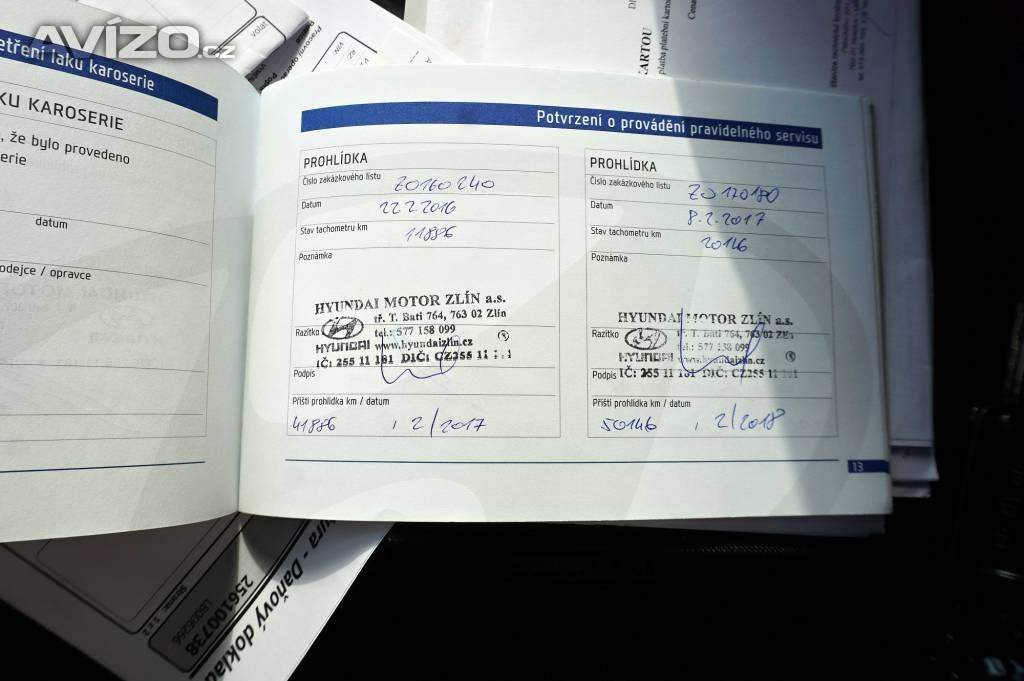 AVÍZO.cz
etření laku karoserie
KU KAROSERIE
, že bylo provedeno
erie
datum
odejce / opravce
Potvrzení o provádění pravidelného servisu
PROHLÍDKA
Číslo zakázkového listu Z0160240
Datum 22.2.2016
Stav tachometru km 11886
Poznámka
HYUNDAI MOTOR ZLÍN a.s.
tř. T. Bati 764, 763 02 Zlín
Razítko tel.: 577 158 099
HYUNDAI www.hyundaizlin.cz
IČ: 255 11 181 DIČ: CZ255 11
Podpis
Příští prohlídka km / datum
41886 , 2/2017
PROHLÍDKA
Číslo zakázkového listu Z0170180
Datum 8.2.2017
Stav tachometru km 20146
Poznámka
HYUNDAI MOTOR ZLÍN a.s.
tř. T. Bati 764, 763 02 Zlín
Razítko tel.: 577 158 099
HYUNDAI www.hyundaizlin.cz
Podpis IČ: 255 11 181 DIČ: CZ255 11
Příští prohlídka km / datum
50146 , 2/2018
13
KARTOU
platba platební kartou
Cena
volat
Pracovní
VIN:
ura - Daňový doklad
256100738
LS006266
Strana: 1 z 2